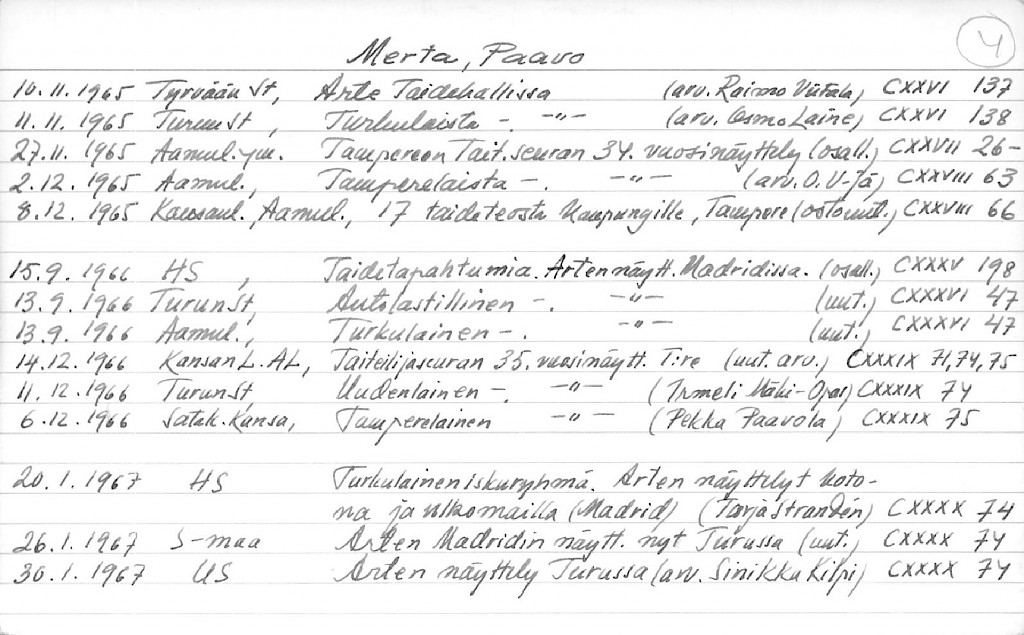 4
Merta, Paavo
10.11.1965 Tyrvään St, Arte Taidehallissa (arv. Raimo Viitala) CXXVI 137
11.11.1965 TurunSt, Turkulaista - . -"- (arv. Osmo Laine) CXXVI 138
27.11.1965 Aamul.ym. Tampereen Tait.seuran 34. vuosinäyttely (osall.) CXXVII 26-
2.12.1965 Aamul., Tamperelaista - . -"- (arv. O.V-jä) CXXVIII 63
8.12.1965 Kansanl. Aamul., 17 taideteosta kaupungille, Tampere (ostouut.) CXXVIII 66
15.9.1966 HS, Taidetapahtumia. Arten näytt. Madridissa. (osall.) CXXXV 198
13.9.1966 TurunSt, Autolastillinen - . -"- (uut.) CXXXVI 47
13.9.1966 Aamul., Turkulainen - . -"- (uut.) CXXXVI 47
14.12.1966 KansanL. AL, Taiteilijaseuran 35. vuosinäytt. T:re (uut. arv.) CXXXIX 71,74,75
11.12.1966 TurunSt, Uudenlainen - . -"- (Irmeli Mäki-) CXXXIX 74
6.12.1966 Satak. Kansa, Tamperelainen -"- (Pekka Paavola) CXXXIX 75
20.1.1967 HS Turkulainen iskuryhmä. Arten näyttelyt koto-
na ja ulkomailla (Madrid) (Tarja Strandén) CXXXX 74
26.1.1967 S-maa Arten Madridin näytt. nyt Turussa (uut.) CXXXX 74
30.1.1967 US Arten näyttely Turussa (arv. Sinikka Kilpi) CXXXX 74